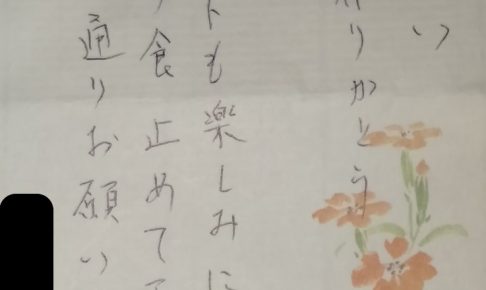 い
りがとう
トも楽しみに
食止めて
通りお願い